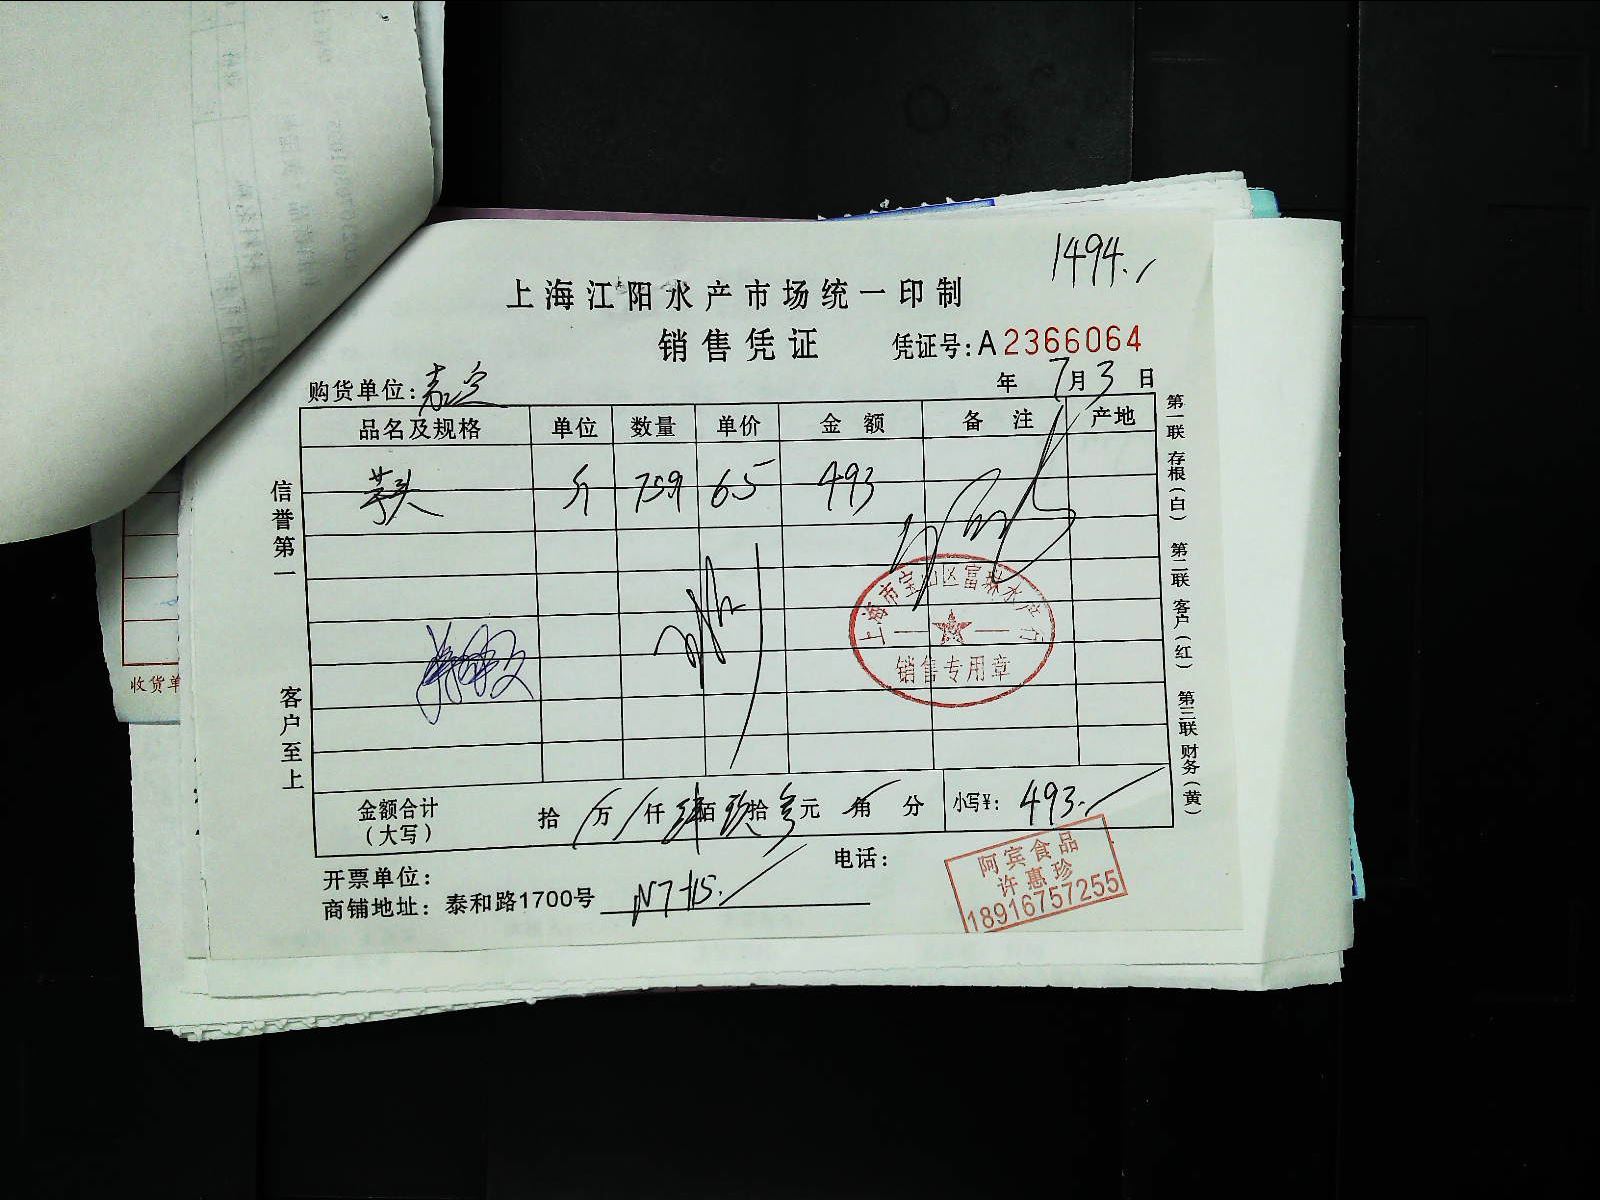 1494.
上海江阳水产市场统一印制
销售凭证 凭证号:A2366064
购货单位:嘉定 年7月3日
品名及规格 单位 数量 单价 金额 备注 产地
芋头 斤 759 65 493
信誉第一
客户至上
第一联 存根(白) 第二联 客户(红) 第三联 财务(黄)
上海市宝山区富弟水产行
销售专用章
金额合计(大写) 拾 万 仟 肆佰 玖拾 叁元 角 分 小写¥:493.
开票单位: 电话:
商铺地址:泰和路1700号 N7-15.
阿宾食品
许惠珍
18916757255
收货单